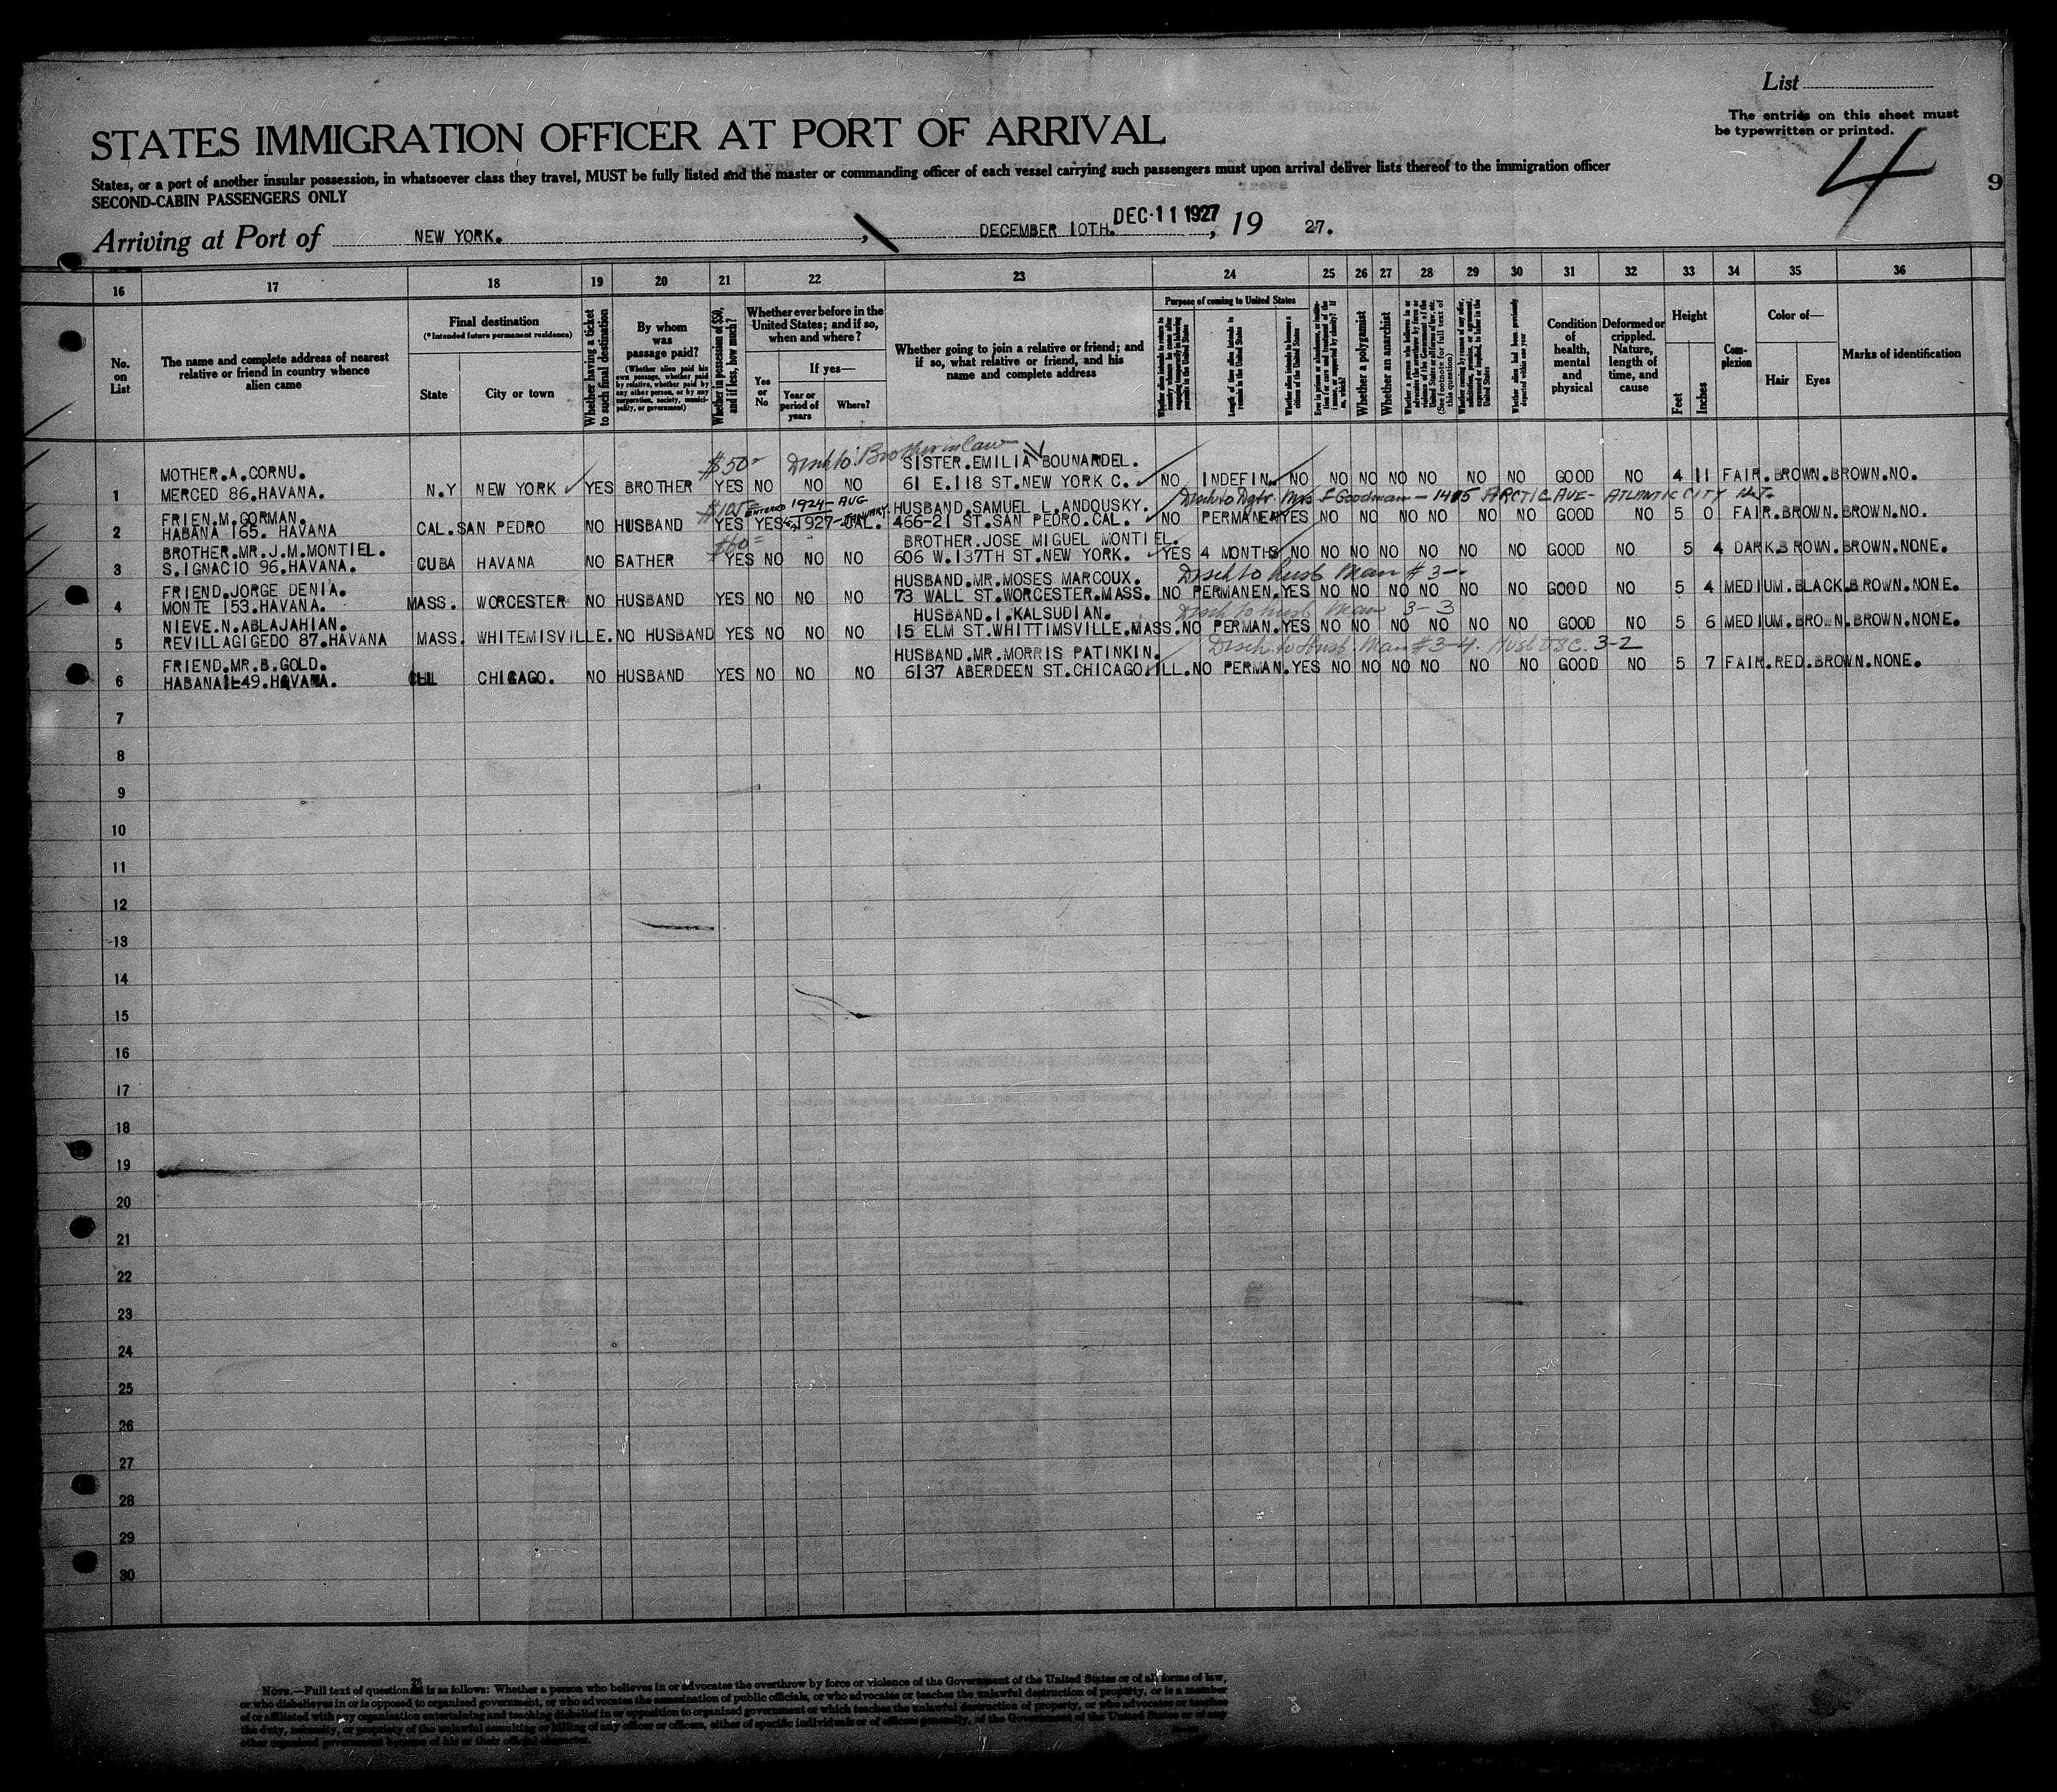 List
The entries on this sheet must
be typewritten or printed.
4
9
STATES IMMIGRATION OFFICER AT PORT OF ARRIVAL
States, or a port of another insular possession, in whatsoever class they travel, MUST be fully listed and the master or commanding officer of each vessel carrying such passengers must upon arrival deliver lists thereof to the immigration officer
SECOND-CABIN PASSENGERS ONLY
Arriving at Port of NEW YORK. , DECEMBER 10TH. DEC 11 1927 , 19 27.
16 17 18 19 20 21 22 23 24 25 26 27 28 29 30 31 32 33 34 35 36
No. on List
The name and complete address of nearest relative or friend in country whence alien came
Final destination
(*Intended future permanent residence)
State
City or town
Whether having a ticket to such final destination
By whom was passage paid?
(Whether alien paid his own passage, whether paid by relative, whether paid by any other person, or by any corporation, society, municipality, or government)
Whether in possession of $50, and if less, how much?
Whether ever before in the United States; and if so, when and where?
Yes or No
If yes—
Year or period of years
Where?
Whether going to join a relative or friend; and if so, what relative or friend, and his name and complete address
Purpose of coming to United States
Length of time alien intends to remain in the United States
Whether alien intends to become a citizen of the United States
Whether a polygamist
Whether an anarchist
(See footnote for full text of this question)
Condition of health, mental and physical
Deformed or crippled. Nature, length of time, and cause
Height
Feet
Inches
Complexion
Color of—
Hair
Eyes
Marks of identification
$50- Disch to: Brother in law
MOTHER.A.CORNU. SISTER.EMILIA BOUNARDEL.
1 MERCED 86.HAVANA. N.Y NEW YORK YES BROTHER YES NO NO NO 61 E.118 ST.NEW YORK C. NO INDEFIN. NO NO NO NO NO NO NO GOOD NO 4 11 FAIR.BROWN.BROWN.NO.
$105= ENTERED 1924-AUG Disch to Dgtr. Mrs F Goodman - 1415 ARCTIC AVE- ATLANTIC CITY N.J.
FRIEN.M.GORMAN. JANUARY. HUSBAND.SAMUEL L.ANDOUSKY.
2 HABANA 165. HAVANA CAL. SAN PEDRO NO HUSBAND YES YES 1927 CAL. 466-21 ST.SAN PEDRO.CAL. NO PERMANEN YES NO NO NO NO NO NO GOOD NO 5 0 FAIR.BROWN.BROWN.NO.
$60=
BROTHER.MR.J.M.MONTIEL. BROTHER.JOSE MIGUEL MONTIEL.
3 S.IGNACIO 96.HAVANA. CUBA HAVANA NO SATHER YES NO NO NO 606 W.137TH ST.NEW YORK. YES 4 MONTHS NO NO NO NO NO NO NO GOOD NO 5 4 DARK.BROWN.BROWN.NONE.
Disch to husb Man #3-
FRIEND.JORGE DENIA. HUSBAND.MR.MOSES MARCOUX.
4 MONTE 153.HAVANA. MASS. WORCESTER NO HUSBAND YES NO NO NO 73 WALL ST.WORCESTER.MASS. NO PERMANEN.YES NO NO NO NO NO NO GOOD NO 5 4 MEDIUM.BLACK.BROWN.NONE.
Disch to husb Man 3-3
NIEVE.N.ABLAJAHIAN. HUSBAND.I.KALSUDIAN.
5 REVILLAGIGEDO 87.HAVANA MASS. WHITEMISVILLE. NO HUSBAND YES NO NO NO 15 ELM ST.WHITTIMSVILLE.MASS. NO PERMAN.YES NO NO NO NO NO NO GOOD NO 5 6 MEDIUM.BROWN.BROWN.NONE.
Disch to Husb. Man #3-4. Husb USC. 3-2
FRIEND.MR.B.GOLD. HUSBAND.MR.MORRIS PATINKIN.
6 HABANA 149.HAVANA. CHICAGO. NO HUSBAND YES NO NO NO 6137 ABERDEEN ST.CHICAGO.ILL. NO PERMAN.YES NO NO NO NO NO NO GOOD NO 5 7 FAIR.RED.BROWN.NONE.
7
8
9
10
11
12
13
14
15
16
17
18
19
20
21
22
23
24
25
26
27
28
29
30
NOTE.—Full text of question 28 is as follows: Whether a person who believes in or advocates the overthrow by force or violence of the Government of the United States or of all forms of law,
or who disbelieves in or is opposed to organized government, or who advocates the assassination of public officials, or who advocates or teaches the unlawful destruction of property, or is a member
of or affiliated with any organization entertaining and teaching disbelief in or opposition to organized government or which teaches the unlawful destruction of property, or who advocates or teaches
the duty, necessity, or propriety of the unlawful assaulting or killing of any officer or officers, either of specific individuals or of officers generally, of the Government of the United States or of any
other organized government because of his or their official character.